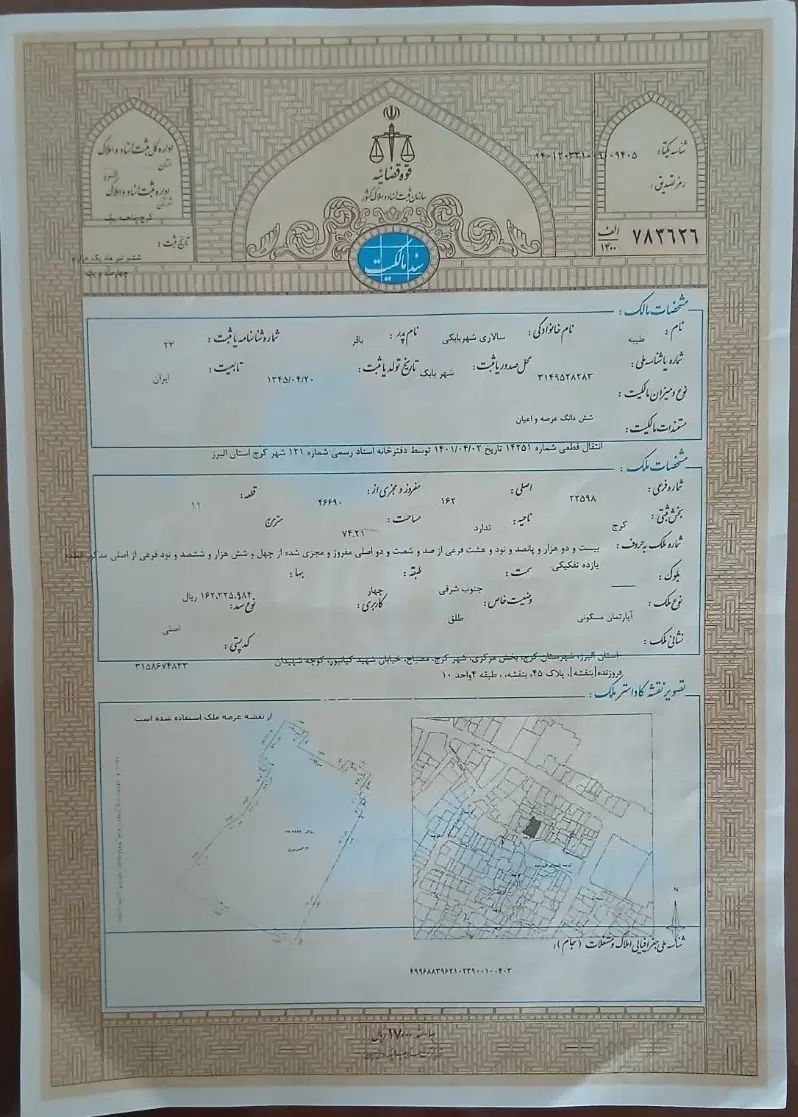 قوه قضائیه
سازمان ثبت اسناد و املاک کشور
سند مالکیت
شناسه یکتا:
رمز تصدیق:
الف
۱۳۰۰
۷۸۳۶۲۶
اداره کل ثبت اسناد و املاک
استان
اداره ثبت اسناد و املاک
کرج ناحیه یک
تاریخ ثبت:
ششم تیر ماه یک هزار و
چهارصد و یک
مشخصات مالک:
نام: طیبه نام خانوادگی: سالاری شهربابکی نام پدر: باقر شماره شناسنامه یا ثبت: ۲۳
شماره یا شناسه ملی: ۳۱۴۹۵۲۸۲۸۳ محل صدور یا ثبت: شهر بابک تاریخ تولد یا ثبت: ۱۳۴۵/۰۴/۲۰ تابعیت: ایران
نوع و میزان مالکیت: شش دانگ عرصه و اعیان
مستندات مالکیت:
انتقال قطعی شماره ۱۴۲۵۱ تاریخ ۱۴۰۱/۰۴/۰۲ توسط دفترخانه اسناد رسمی شماره ۱۲۱ شهر کرج استان البرز
مشخصات ملک:
شماره فرعی: ۲۲۵۹۸ اصلی: ۱۶۲ مفروز و مجزی از: ۴۶۶۹۰ قطعه: ۱۱
بخش ثبتی: کرج ناحیه: ندارد مساحت: ۷۴.۲۱ مترمربع
شماره ملک به حروف: بیست و دو هزار و پانصد و نود و هشت فرعی از صد و شصت و دو اصلی مفروز و مجزی شده از چهل و شش هزار و ششصد و نود فرعی از اصلی مذکور قطعه
یازده تفکیکی
بلوک: سمت: جنوب شرقی طبقه: چهار بها: ۱۶۲,۳۲۵,۹۸۴ ریال
نوع ملک: آپارتمان مسکونی وضعیت خاص: طلق کاربری: نوع سند: اصلی
نشانی ملک: کدپستی: ۳۱۵۸۶۷۴۸۳۳
استان البرز، شهرستان کرج، بخش مرکزی، شهر کرج، مصباح، خیابان شهید کیانپور، کوچه شهیدان
فروزنده[بنفشه]، پلاک ۴۵، بنفشه، ، طبقه ۴واحد ۱۰
تصویر نقشه کاداستر ملک:
از نقشه عرصه ملک استفاده شده است
N
شناسه ملی جغرافیایی املاک و مستغلات (جام):
۴۹۹۶۸۸۳۹۶۲۱۰۲۳۹۰۰۱۰۰۴۰۳
بها سند ۱۷۰۰۰۰ ریال